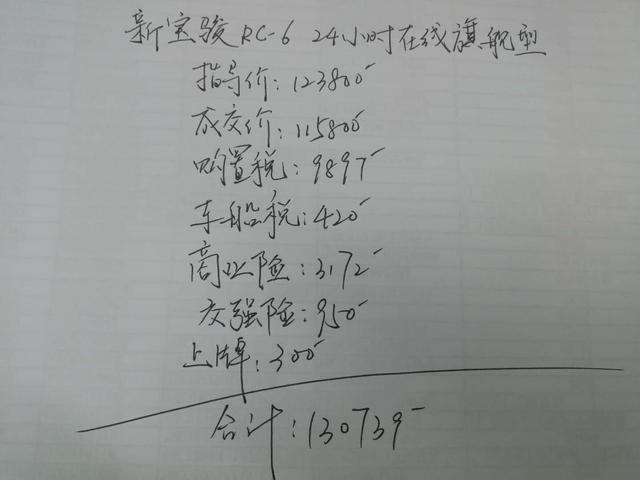 新宝骏RC-6 24小时在线旗舰型
指导价:123800
成交价:115800
购置税:9897
车船税:420
商业险:3172
交强险:950
上牌:300
合计:130739